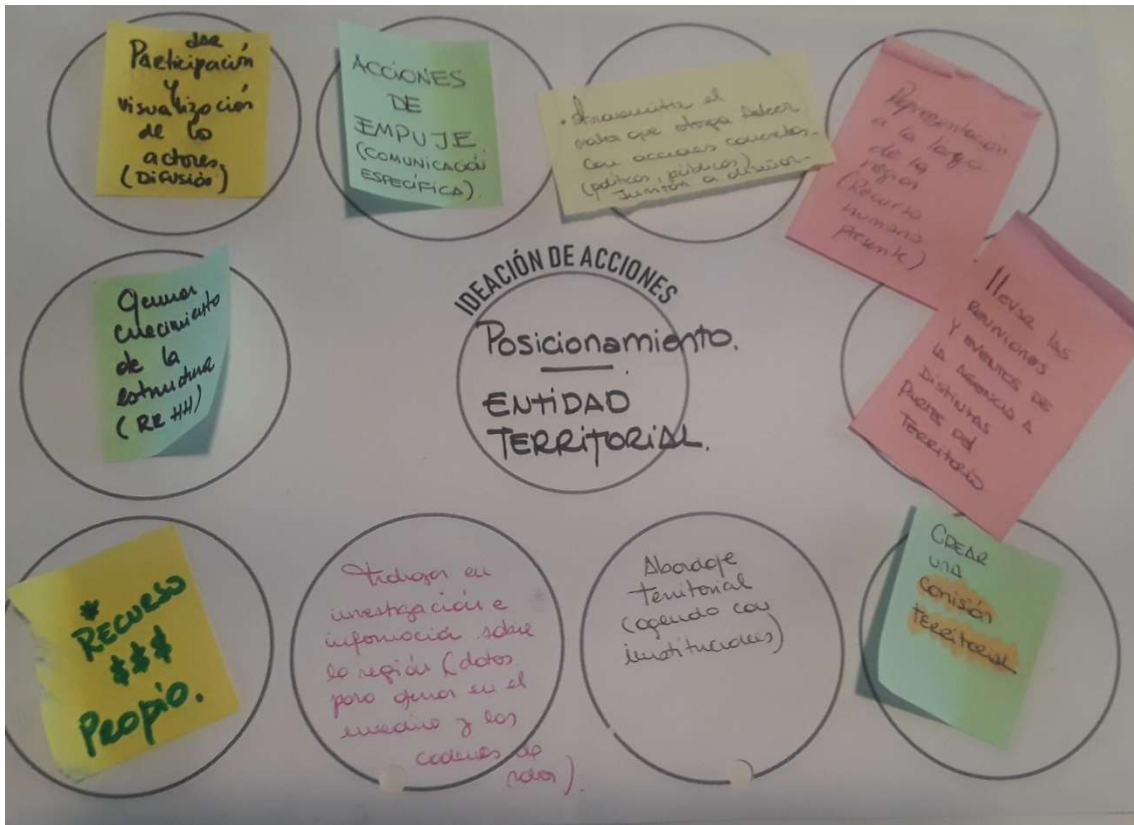 dar
Participación
y
visualización
de lo
actores
(DIFUSIÓN)
ACCIONES
DE
EMPUJE
(COMUNICACIÓN
ESPECÍFICA).
el
valor que otorga
con acciones concretas.
(políticas, públicas)
Representación
a lo largo
de la
región
(Recurso
humano
presente)
IDEACIÓN DE ACCIONES
Posicionamiento.
ENTIDAD
TERRITORIAL.
Generar
crecimiento
de la
estructura
(RR HH)
llevar las
REUNIONES
Y EVENTOS DE
LA AGENCIA A
DISTINTAS
PARTES DEL
TERRITORIO
*
RECURSO
$$$
Propio.
Trabajar en
investigación e
información sobre
la región (datos
para en el
medio y las
cadenas de
valor).
Abordaje
territorial
(agenda con
instituciones)
CREAR
UNA
Comisión
TERRITORIAL